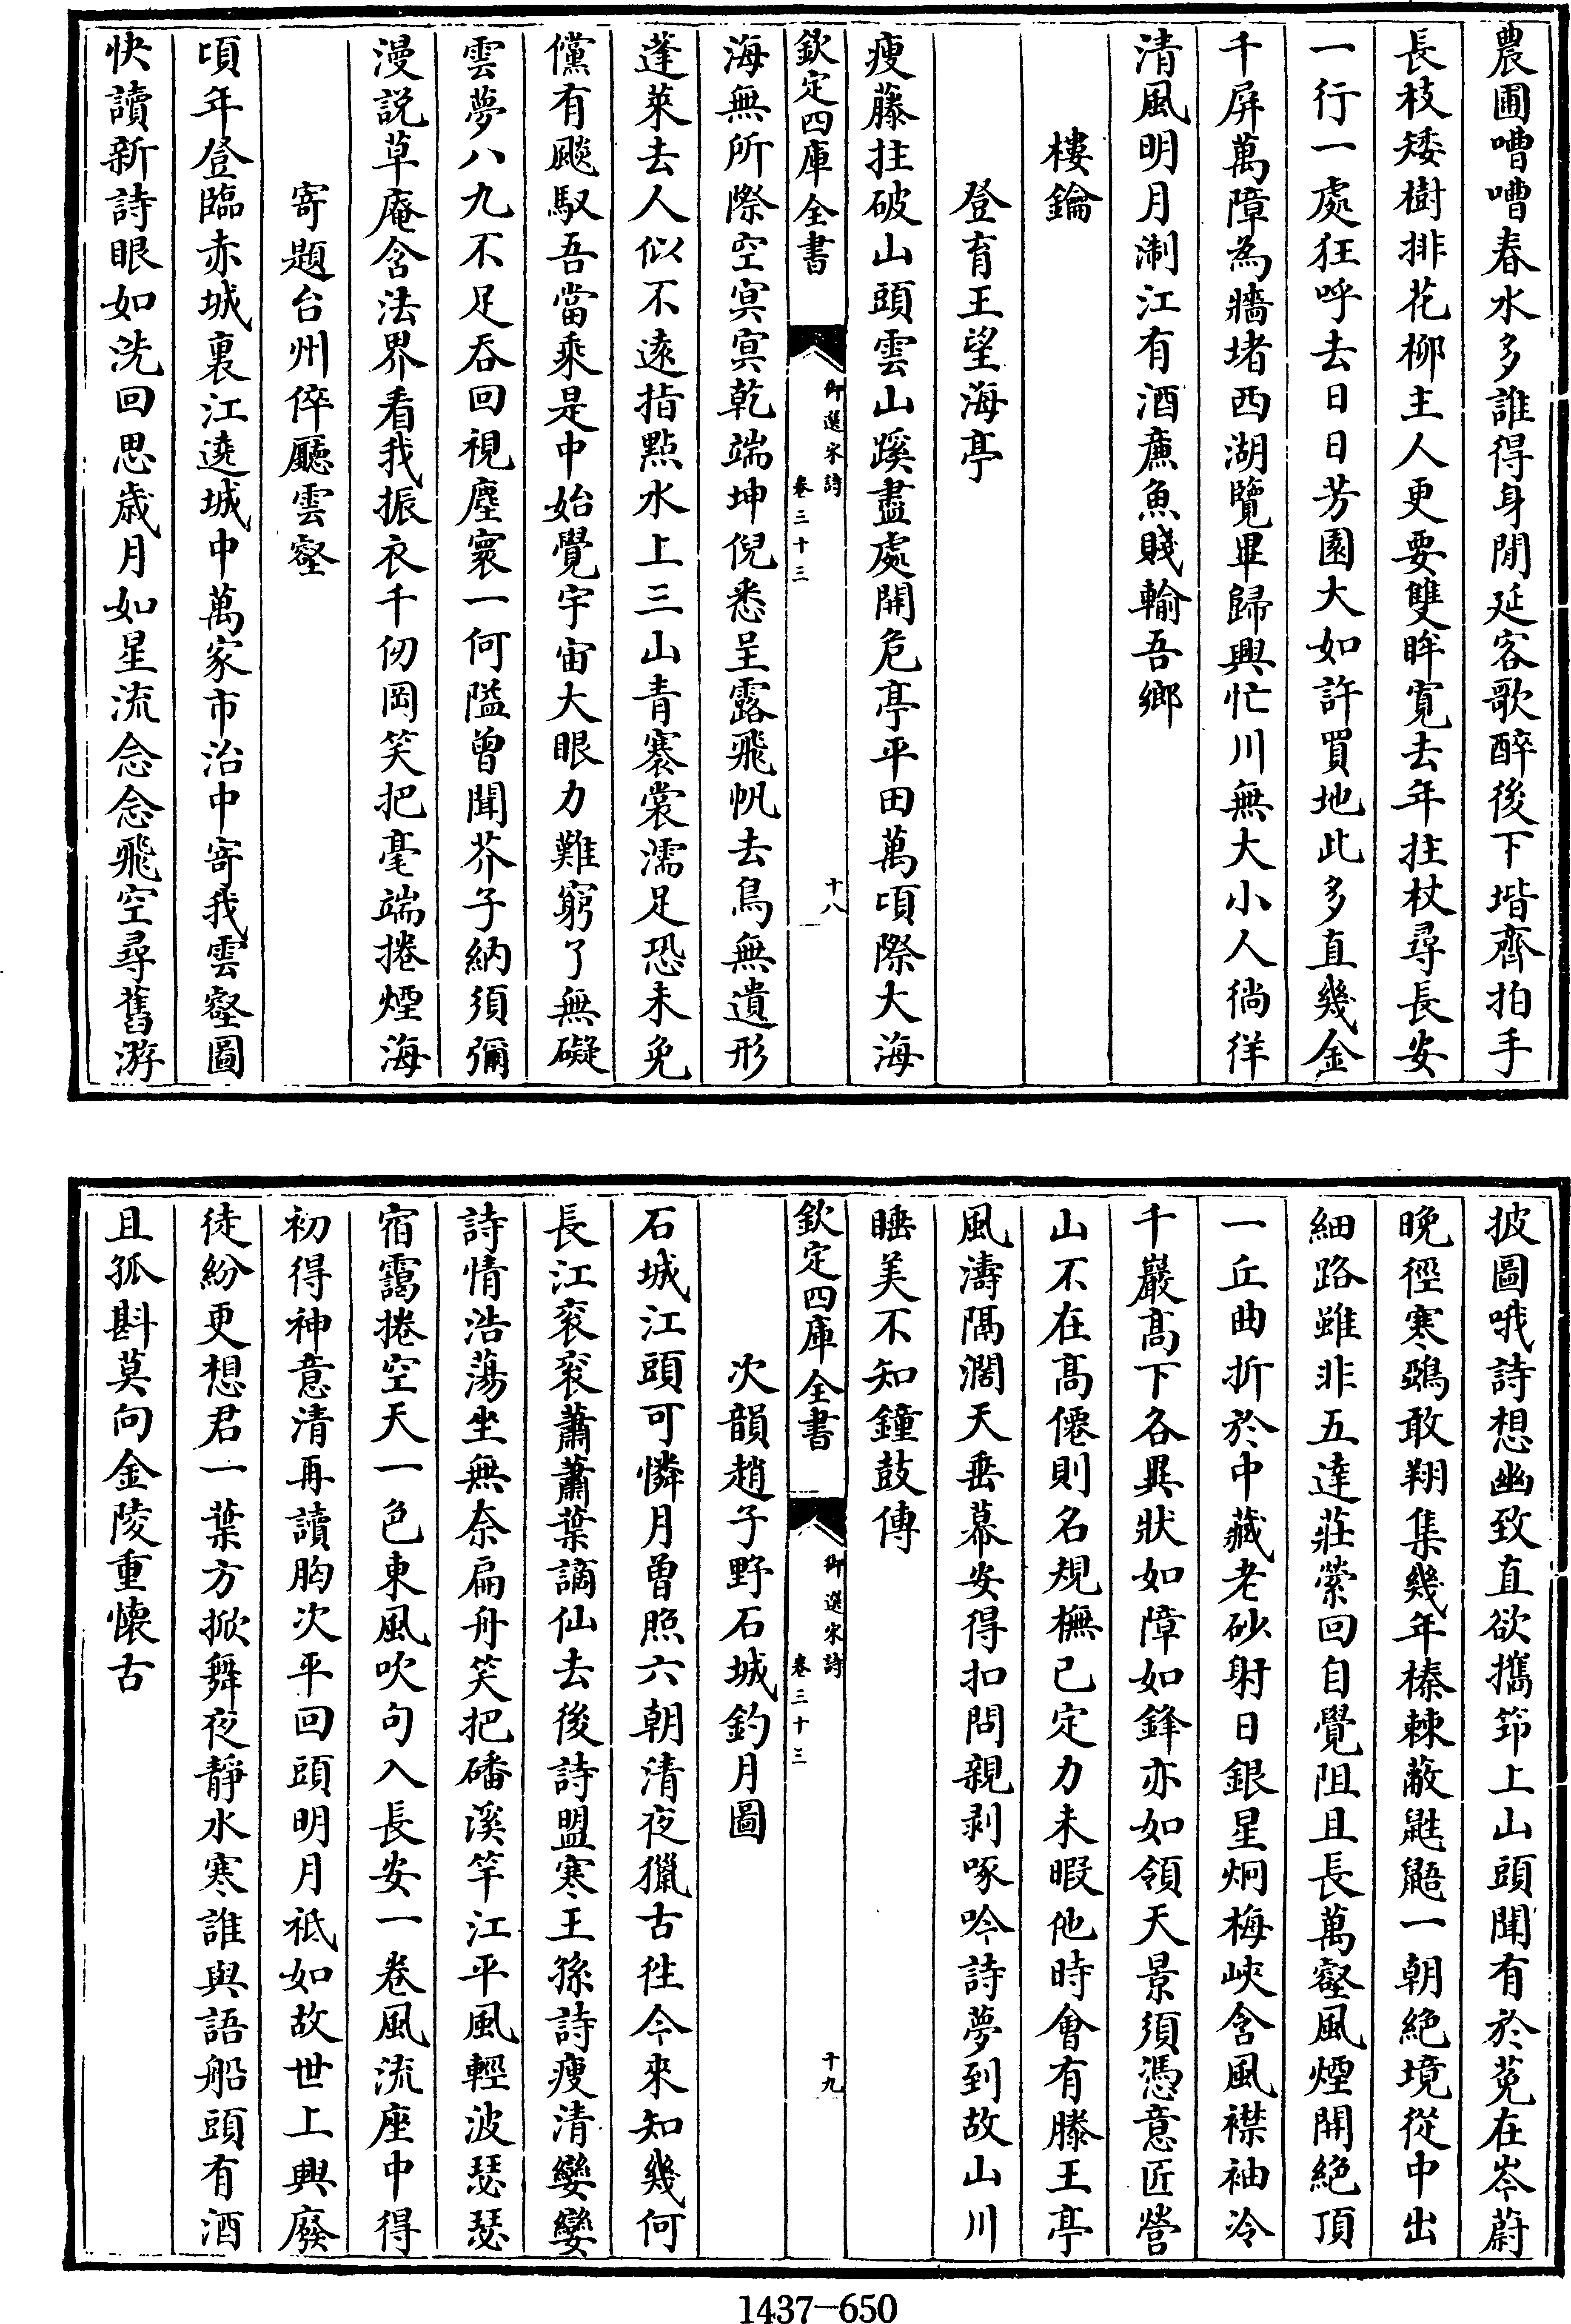 農圃嘈嘈春水多誰得身閒延客歌醉後下堦齊拍手
長枝矮樹排花柳主人更要雙眸寛去年拄杖尋長安
一行一處狂呼去日日芳園大如許買地此多直幾金
千屏萬障為牆堵西湖覽畢歸興忙川無大小人徜徉
清風明月淛江有酒亷魚賤輸吾鄉
樓鑰
登育王望海亭
瘦藤拄破山頭雲山蹊盡處開危亭平田萬頃際大海
欽定四庫全書
御選宋詩
卷三十三
十八
海無所際空㝠㝠乾端坤倪悉呈露飛帆去鳥無遺形
蓬萊去人似不逺指㸃水上三山青褰裳濡足恐未免
儻有飈馭吾當乘是中始覺宇宙大眼力難窮了無礙
雲夢八九不足吞回視塵寰一何隘曾聞芥子納須彌
漫説草庵含法界看我振衣千仞岡笑把毫端捲煙海
寄題台州倅廳雲壑
頃年登臨赤城裏江遶城中萬家市治中寄我雲壑圖
快讀新詩眼如洗回思歳月如星流念念飛空尋舊游
披圖哦詩想幽致直欲攜笻上山頭聞有於菟在岑蔚
晚徑寒鵶敢翔集幾年榛棘蔽鼪鼯一朝絶境從中出
細路雖非五達莊縈回自覺阻且長萬壑風煙開絶頂
一丘曲折於中藏老砂射日銀星炯梅峽含風襟袖冷
千巖高下各異狀如障如鋒亦如領天景須憑意匠營
山不在高僊則名規橅已定力未暇他時會有滕王亭
風濤隔濶天垂幕安得扣問親剥啄吟詩夢到故山川
睡美不知鐘鼓傳
欽定四庫全書
御選宋詩
卷三十三
十九
次韻趙子野石城釣月圖
石城江頭可憐月曾照六朝清夜獵古徃今來知幾何
長江衮衮蕭蕭葉謫仙去後詩盟寒王孫詩瘦清孌孌
詩情浩蕩坐無奈扁舟笑把磻溪竿江平風輕波瑟瑟
宿靄捲空天一色東風吹句入長安一卷風流座中得
初得神意清再讀胸次平回頭明月祗如故世上興廢
徒紛更想君一葉方掀舞夜靜水寒誰與語船頭有酒
且孤斟莫向金陵重懐古
1437—650